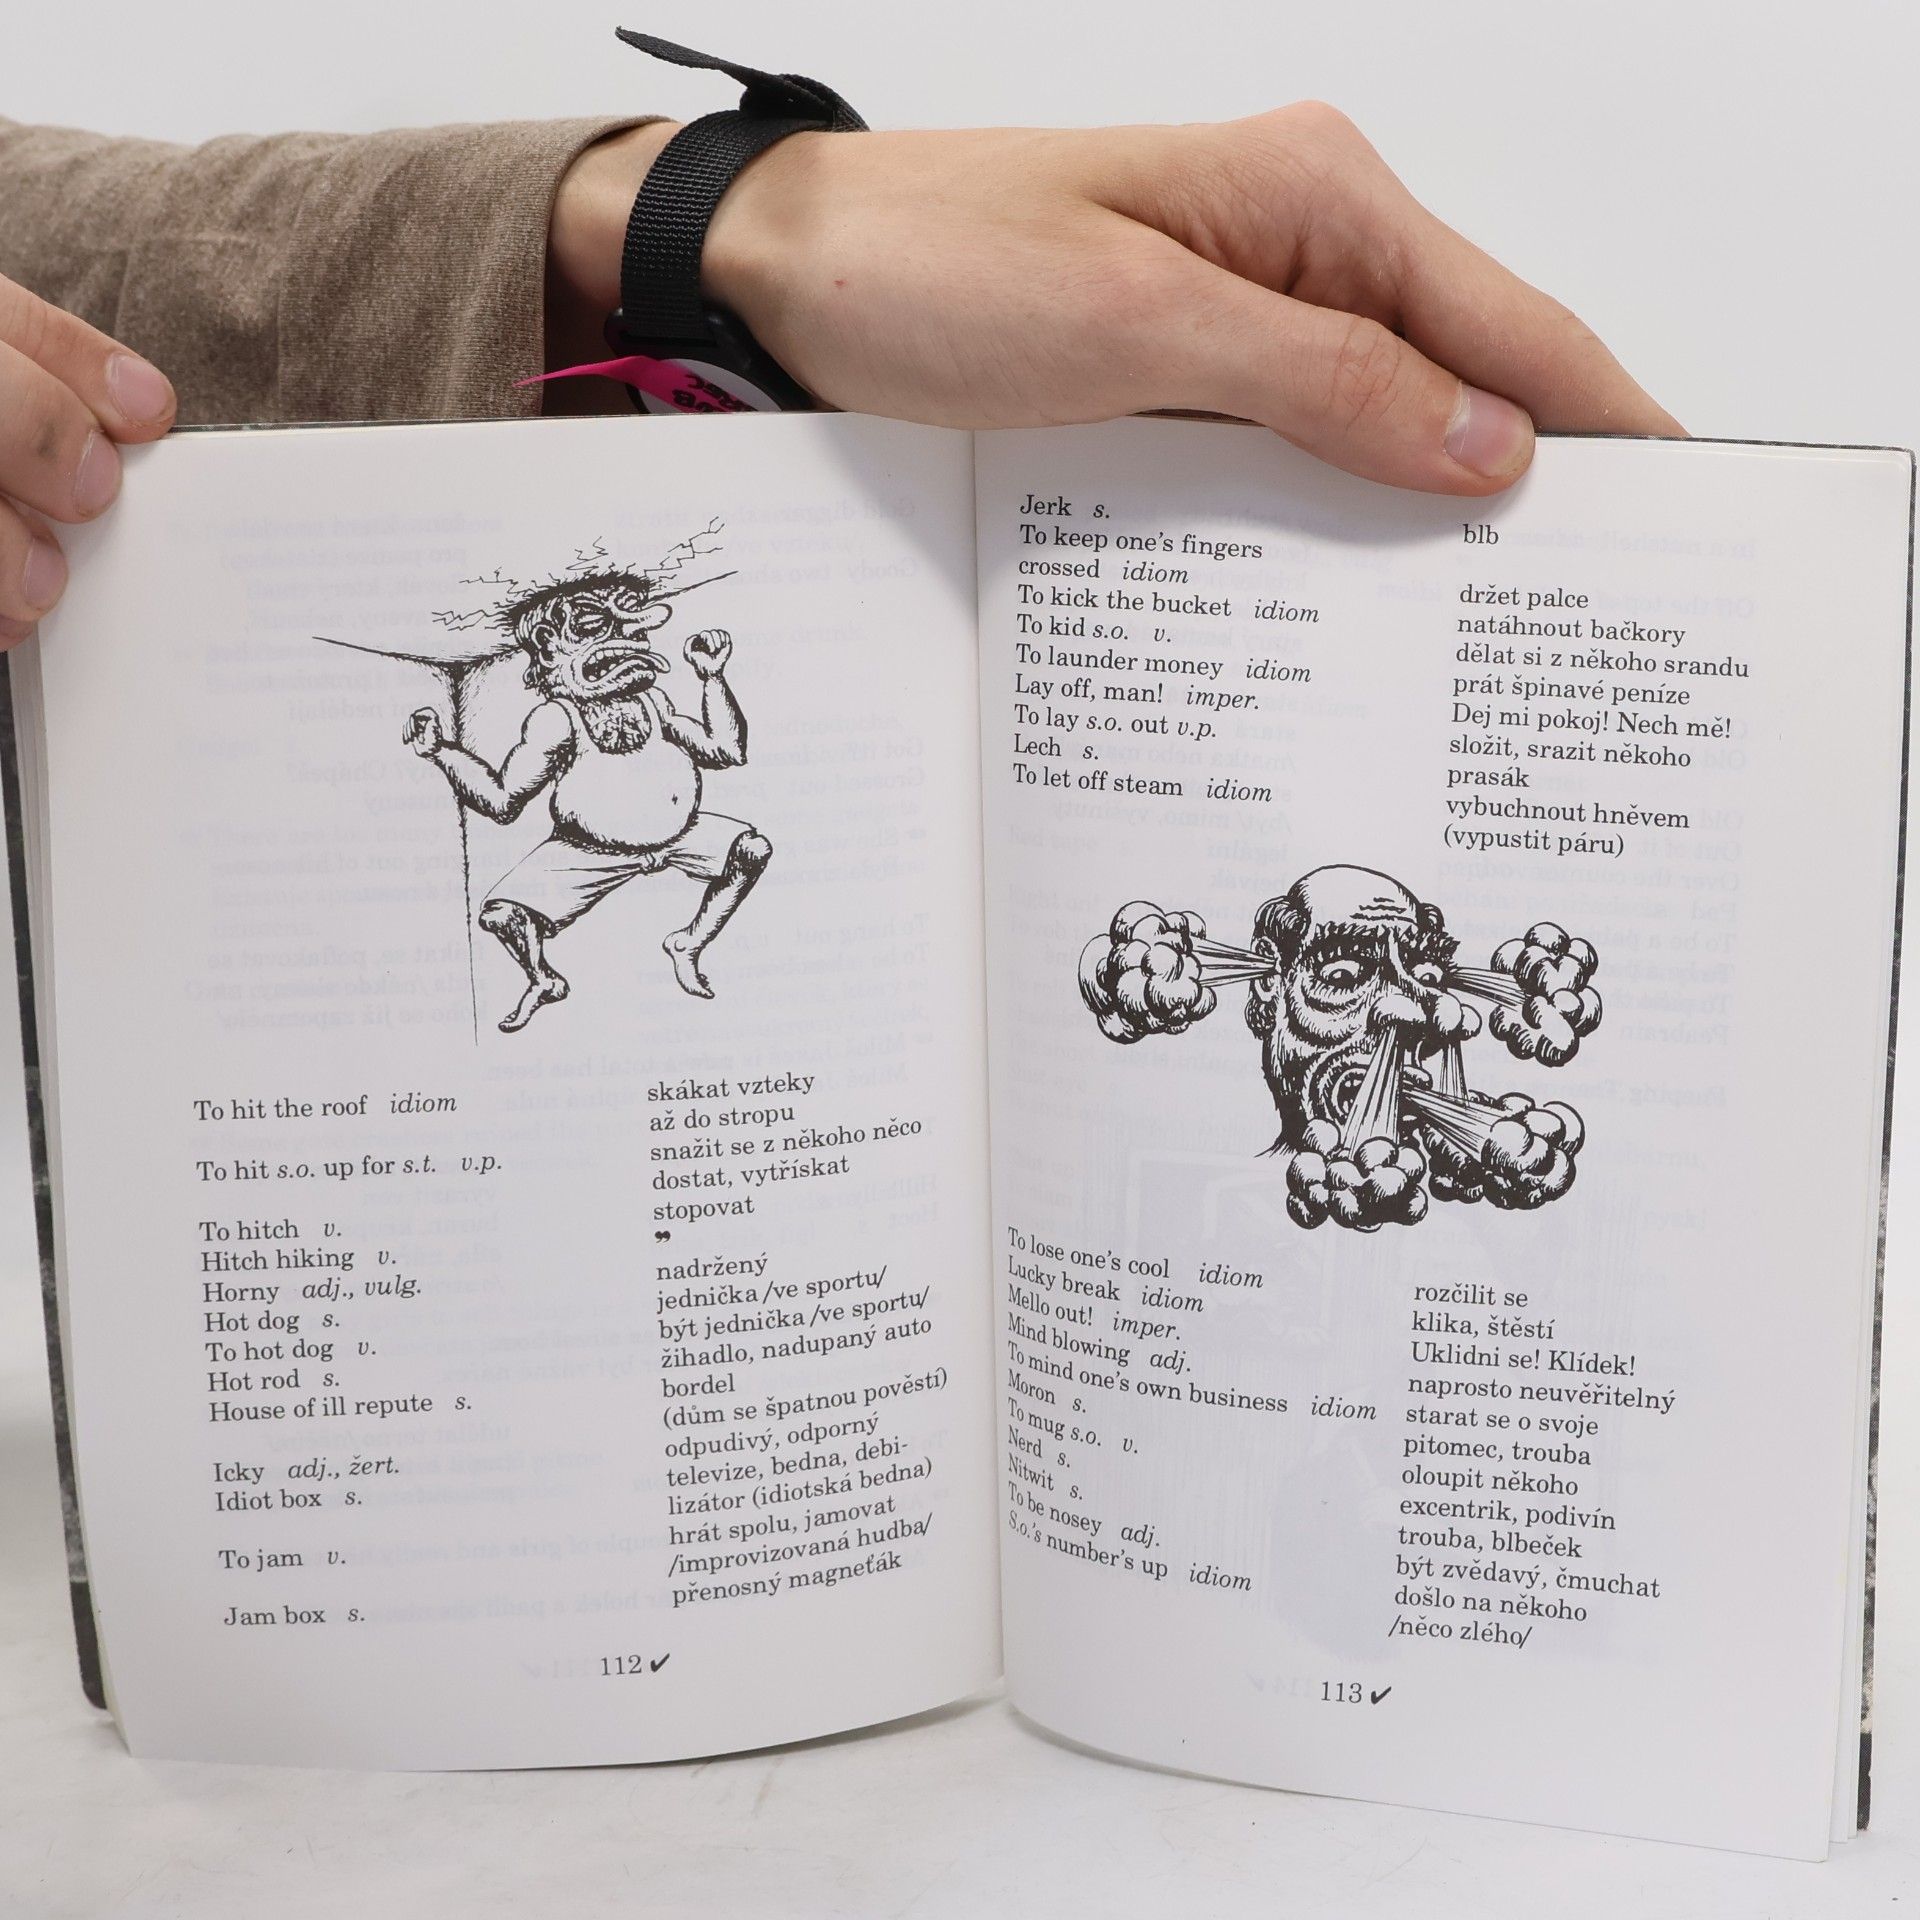 To hit the roof idiom
To hit s.o. up for s.t. v.p.
To hitch v.
Hitch hiking v.
Horny adj., vulg.
Hot dog s.
To hot dog v.
Hot rod s.
House of ill repute s.
Icky adj., žert.
Idiot box s.
To jam v.
Jam box s.
skákat vzteky
až do stropu
snažit se z někoho něco
dostat, vytřískat
stopovat
”
nadržený
jednička /ve sportu/
být jednička /ve sportu/
žihadlo, nadupaný auto
bordel
(dům se špatnou pověstí)
odpudivý, odporný
televize, bedna, debi-
lizátor (idiotská bedna)
hrát spolu, jamovat
/improvizovaná hudba/
přenosný magneťák
112 ✓
Jerk s.
To keep one's fingers
crossed idiom
To kick the bucket idiom
To kid s.o. v.
To launder money idiom
Lay off, man! imper.
To lay s.o. out v.p.
Lech s.
To let off steam idiom
blb
držet palce
natáhnout bačkory
dělat si z někoho srandu
prát špinavé peníze
Dej mi pokoj! Nech mě!
složit, srazit někoho
prasák
vybuchnout hněvem
(vypustit páru)
To lose one's cool idiom
Lucky break idiom
Mello out! imper.
Mind blowing adj.
To mind one's own business idiom
Moron s.
To mug s.o. v.
Nerd s.
Nitwit s.
To be nosey adj.
S.o.'s number's up idiom
rozčilit se
klika, štěstí
Uklidni se! Klídek!
naprosto neuvěřitelný
starat se o svoje
pitomec, trouba
oloupit někoho
excentrik, podivín
trouba, blbeček
být zvědavý, čmuchat
došlo na někoho
/něco zlého/
113 ✓